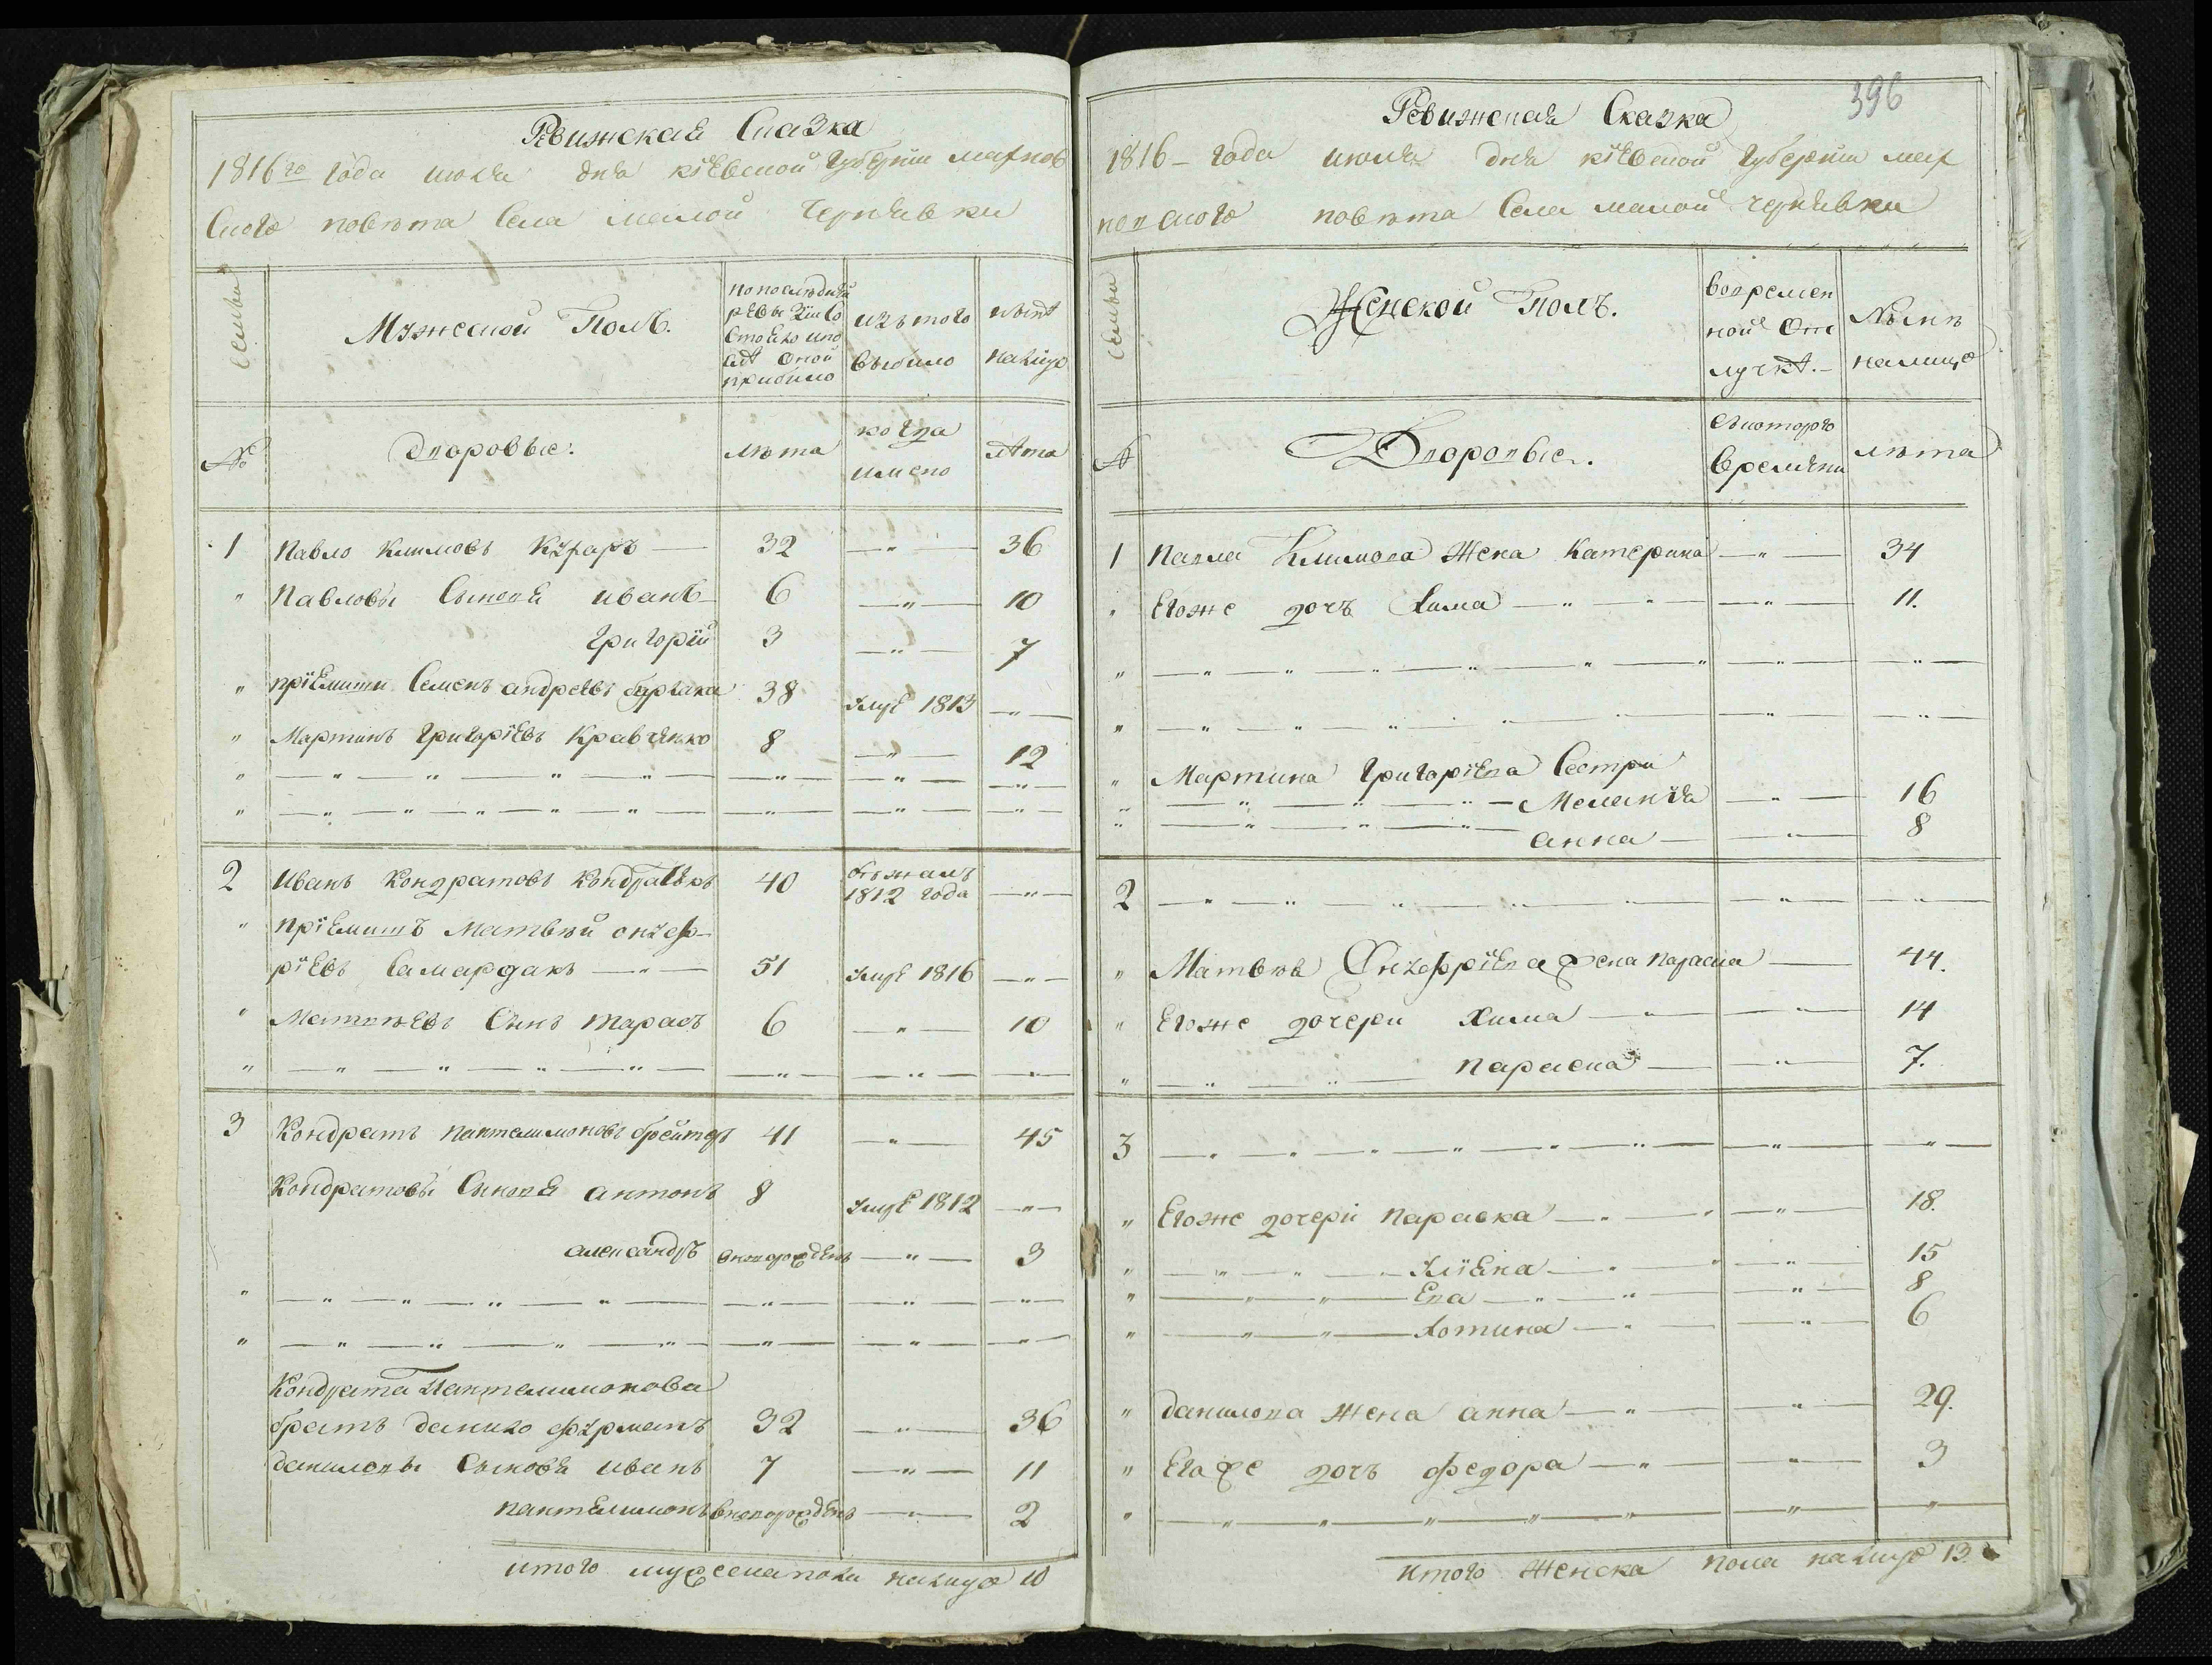 Ревижская Сказка
1816го года июля дня кіевской губерніи махнов
ского повѣта села малой чернявки
семьи
Мужеской Полъ.
по последней
ревизіи со
стояло и по
слѣ оной
прибило
изъ того
выбило
нынѣ
налицо
№
Дворовые:
лѣта
когда
имено
лѣта
1 Павло Климовъ Кухаръ 32 — 36
" Павловы Сыновя иванъ 6 — 10
Григорій 3 — 7
" пріемиши Семенъ андреевъ бурлака 38 умре 1813 —
" Мартинъ Григоріевъ Кравченко 8 — 12
2 Иванъ Кондратовъ 40 бежалъ
1812 года —
" пріемишъ Матвѣй онуф-
ріевъ Самардакъ — 51 умре 1816 —
" Матвѣевъ Сынъ тарасъ 6 — 10
3 Кондратъ пантелимоновъ 41 — 45
Кондратовы Сыновя антонъ 8 умре 1812 —
александръ вноворожденъ — 3
Кондрата Пантелимонова
братъ данило фурманъ 32 — 36
даниловы Сыновя иванъ 7 — 11
пантелимонъ вноворожденъ — 2
итого мужеска пола налицо 10
396
Ревижская Сказка
1816 – года июля дня кіевской губерніи мах
новского повѣта села малой чернявки
семьи
Женской Полъ.
во времен
ной от
лучкѣ.
Нынѣ
налицо
№
Дворовые.
съ котораго
времяни
лѣта
1 Павла Климова Жена Катерина — 34
" Егоже дочь Хима — 11.
" Мартина Григоріева Сестри
Меланія — 16
анна — 8
2
" Матвѣя Онуфріева жена параска — 44.
" Егоже дочери Химa — 14
" параска — 7.
3
" Егоже дочери параска — 18.
" Уліяна — 15
" Ева — 8
" Хотина — 6
" данилова Жена анна — 29.
" Егоже дочь федора — 3
итого Женска пола налицо 13